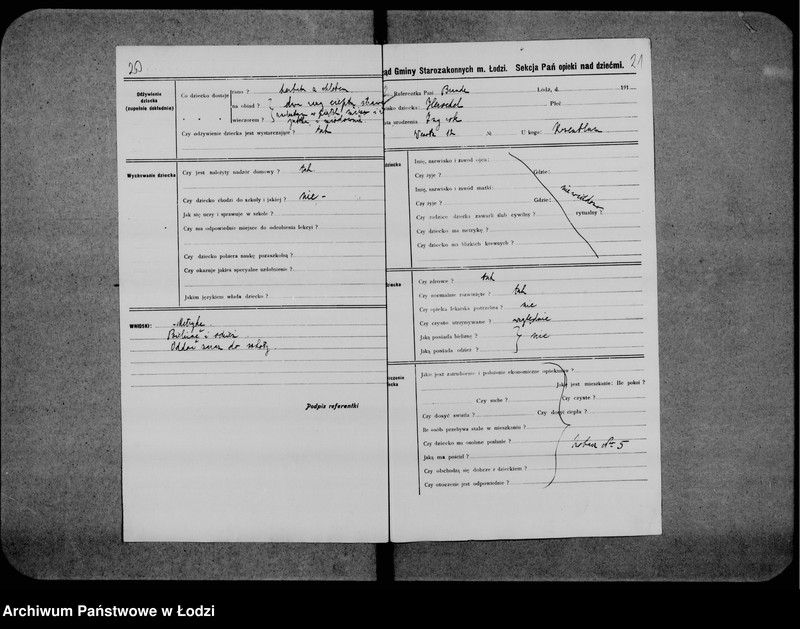 20
Odżywienie dziecka (zupełnie dokładnie)
Co dziecko dostaje rano ?
na obiad ?
" " " wieczorem ?
Czy odżywienie dziecka jest wystarczające ? tak
Wychowanie dziecka
Czy jest należyty nadzór domowy ? tak
Czy dziecko chodzi do szkoły i jakiej ? nie -
Jak się uczy i sprawuje w szkole ?
Czy ma odpowiednie miejsce do odrobienia lekcyi ?
Czy dziecko pobiera naukę pozaszkolną ?
Czy okazuje jakieś specyalne uzdolnienie ?
Jakim językiem włada dziecko ?
WNIOSKI: Metryka
Oddać do szkoły
Podpis referentki
ąd Gminy Starozakonnych m. Łodzi. Sekcja Pań opieki nad dziećmi. 21
Referentka Pani Łódź, d. 191
dziecka: Herschel Płeć
urodzenia
№ U kogo:
dziecka
Imię, nazwisko i zawód ojca:
Czy żyje ? Gdzie:
Imię, nazwisko i zawód matki:
Czy żyje ? Gdzie:
Czy rodzice dziecka zawarli ślub cywilny ? rytualny ?
Czy dziecko ma metrykę ?
Czy dziecko ma bliskich krewnych ?
Czy zdrowe ? tak
Czy normalnie rozwinięte ? tak
Czy opieka lekarska potrzebna ? nie
Czy czysto utrzymywane ? względnie
Jaką posiada bieliznę ? nie
Jaką posiada odzież ?
Jakie jest zatrudnienie i położenie ekonomiczne opiekunów ?
Jakie jest mieszkanie: Ile pokoi ?
Czy suche ? Czy czyste ?
Czy dosyć światła ? Czy dosyć ciepła ?
Ile osób przebywa stale w mieszkaniu ?
Czy dziecko ma osobne posłanie ?
Jaką ma pościel ?
Czy obchodzą się dobrze z dzieckiem ?
Czy otoczenie jest odpowiednie ?
Archiwum Państwowe w Łodzi